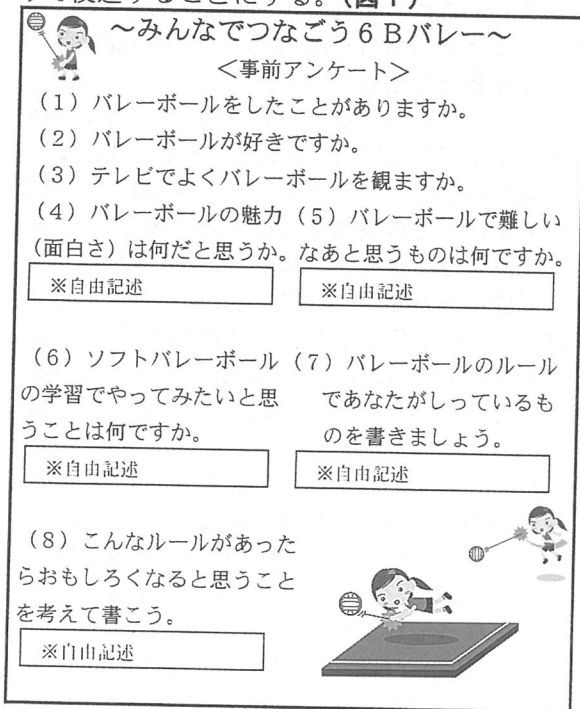 することにする。(図1)
～みんなでつなごう6Bバレー～
＜事前アンケート＞
(1) バレーボールをしたことがありますか。
(2) バレーボールが好きですか。
(3) テレビでよくバレーボールを観ますか。
(4) バレーボールの魅力
(面白さ) は何だと思うか。
※自由記述
(5) バレーボールで難しい
なあと思うものは何ですか。
※自由記述
(6) ソフトバレーボール
の学習でやってみたいと思
うことは何ですか。
※自由記述
(7) バレーボールのルール
であなたがしっているも
のを書きましょう。
※自由記述
(8) こんなルールがあった
らおもしろくなると思うこと
を考えて書こう。
※自由記述